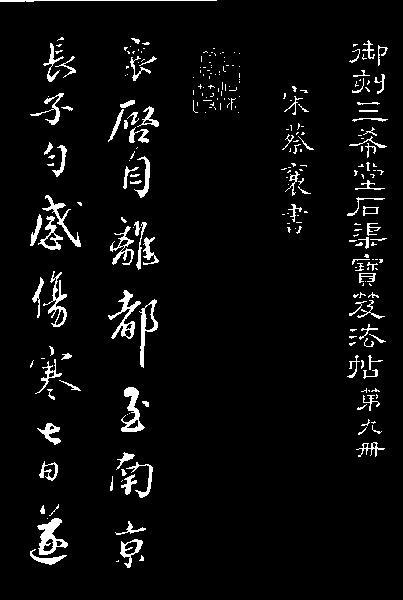 御刻三希堂石渠寶笈法帖第九冊
宋蔡襄書
襄啓自離都至南京
長子勻感傷寒七日遂